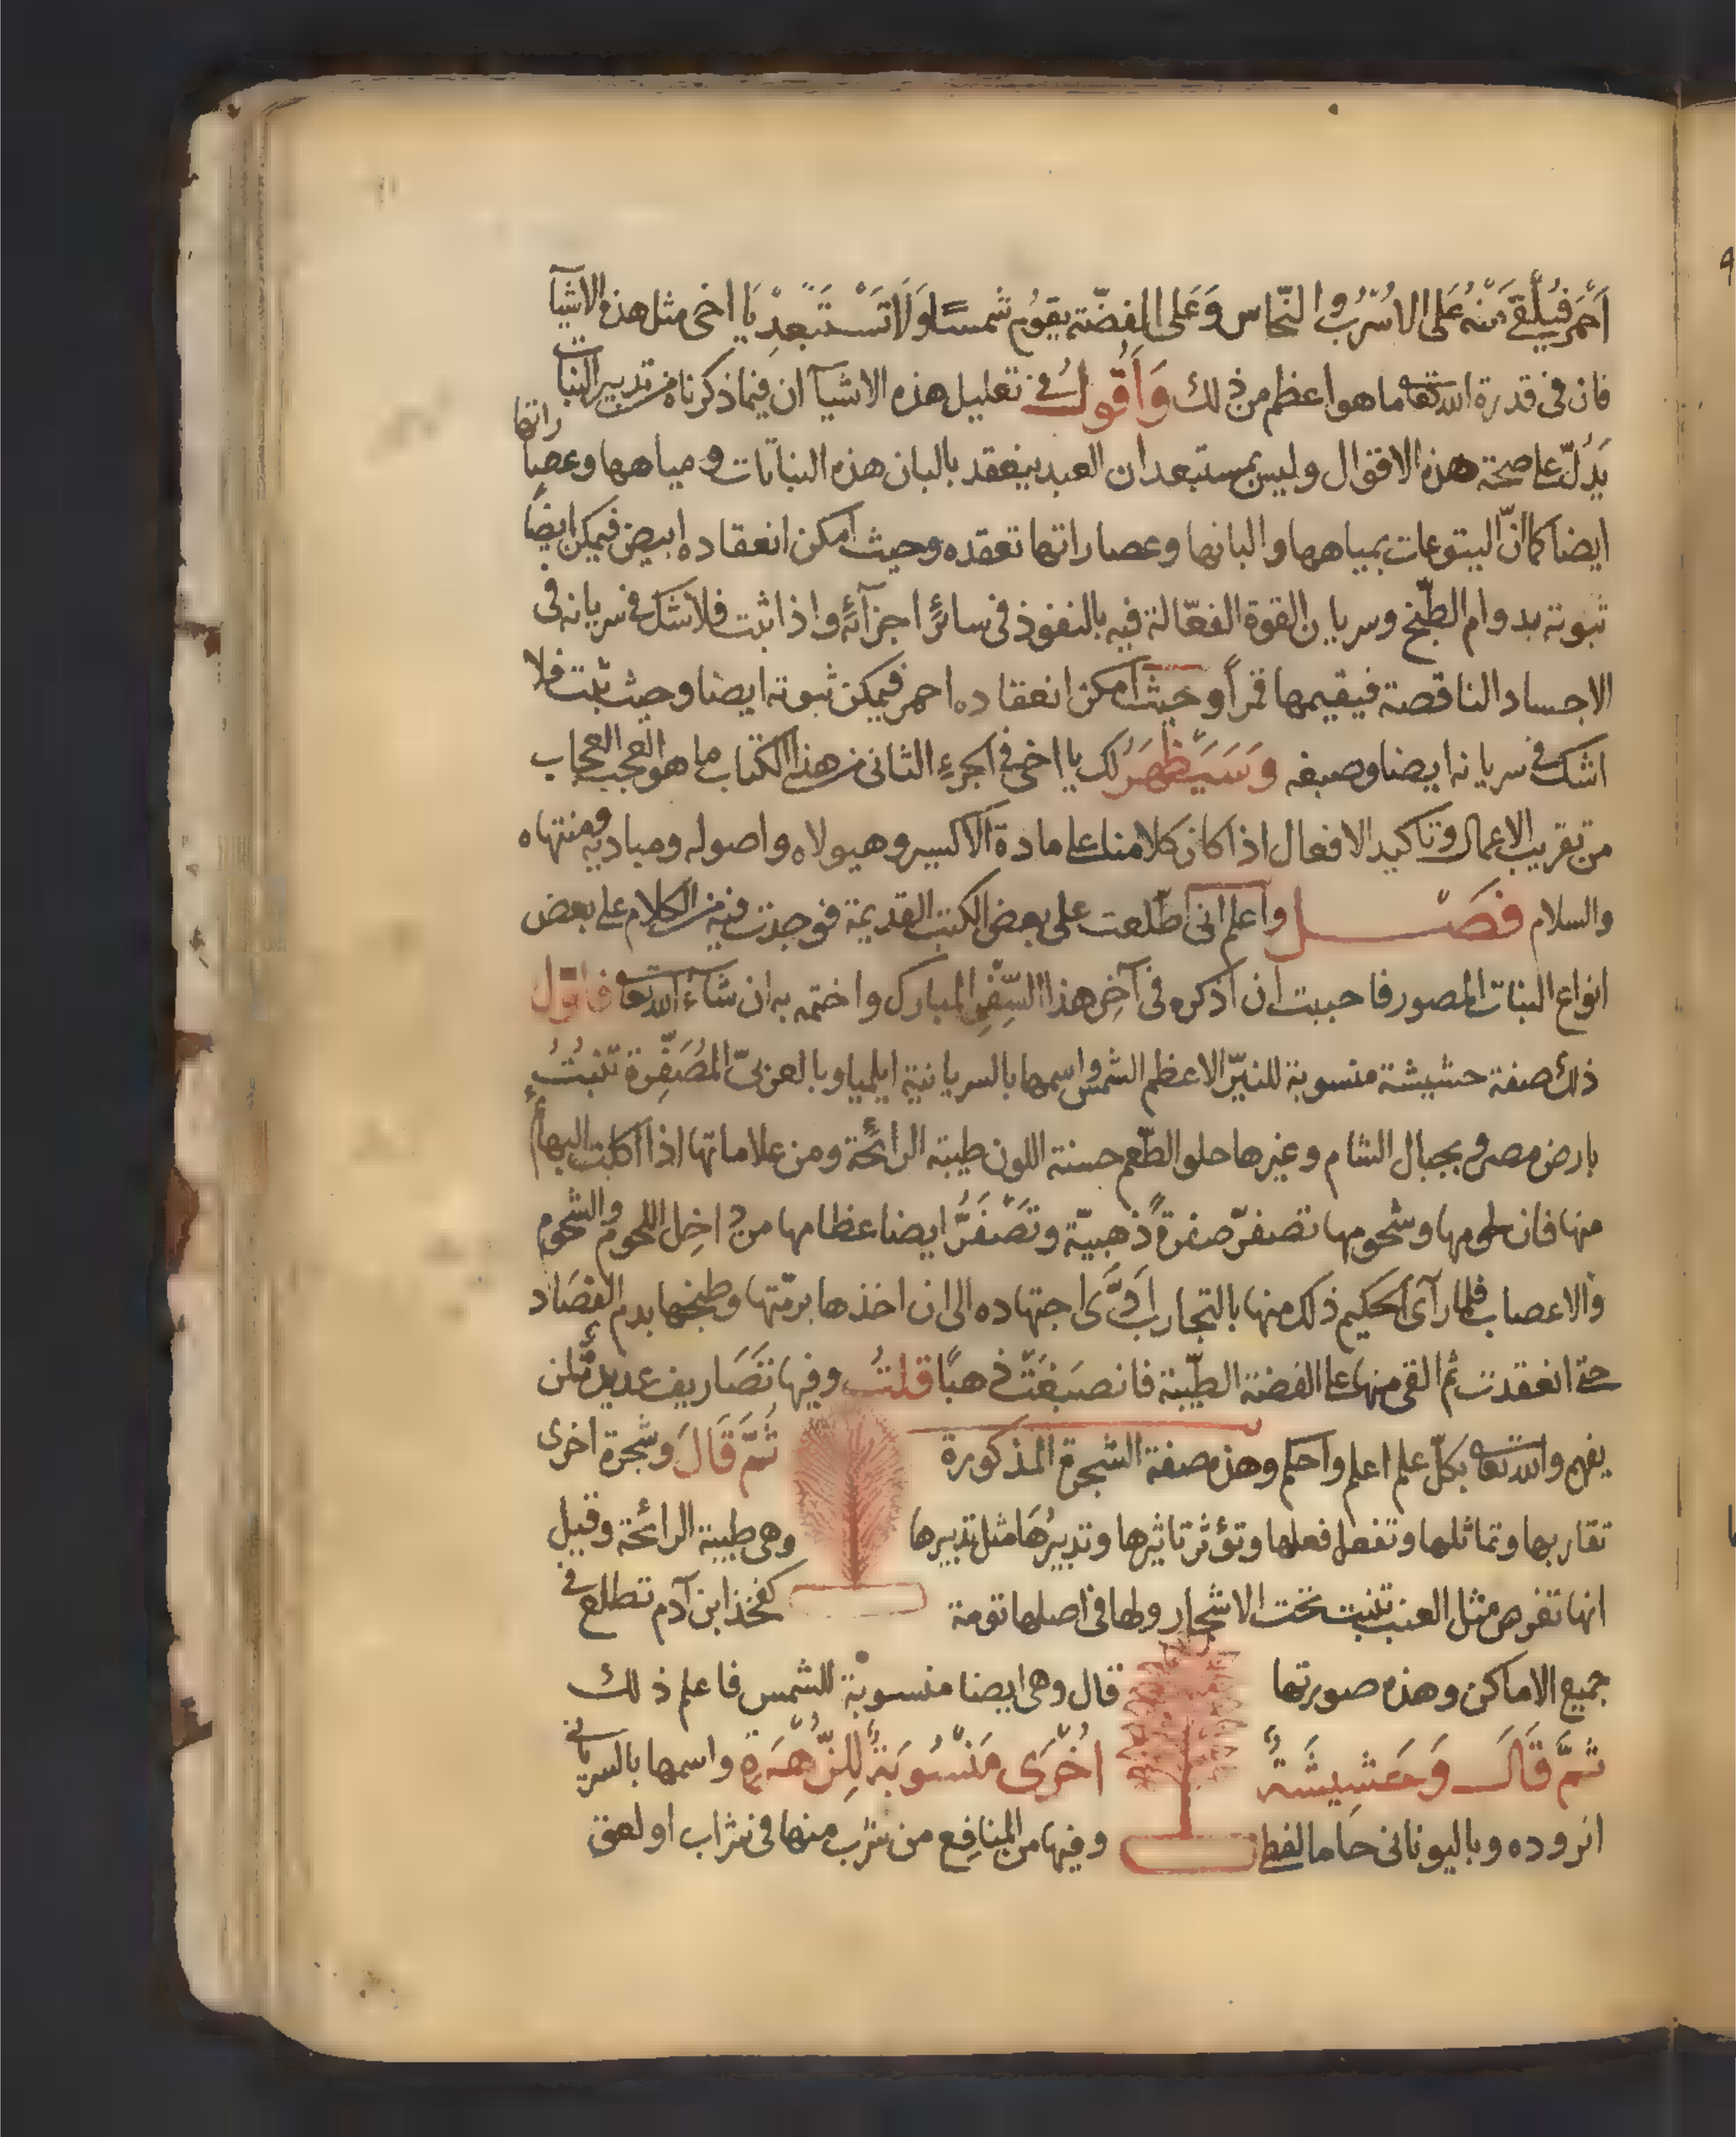 اَحْمَر فيُلْقَى مِنْهُ عَلى الاُسْرُب والنّحاس وَعَلى الفضّة يقوُم شمسًا وَلَا تَسْتَبعِدْ يَا اخى مثل هذه الاشيآ
فان فى قدرة الله تعا ما هو اعظم من ذلك وَاَقُولُ فى تعليل هذه الاشيآ ان فيما ذكرناه من تدبير النبات
يَدُلّ على صحة هذه الاقوال وليس بمستبعد ان العبد ينعقد بالبان هذه النباتات ومياهها وعصاراتها
ايضا كما انّ اليتوعات بمياهها والبانها وعصاراتها تعقده وحيث امكن انعقاده ابيض فيمكن ايضًا
ثبوته بدوام الطّبخ وسريان القوة الفعّالة فيه بالنفوذ فى سائر اجزآئه واذا ثبت فلا شك فى سريانه فى
الاجساد الناقصة فيقيمها قمراً وحيث امكن انعقاده احمر فيمكن ثبوته ايضا وحيث ثبت فلا
اشك فى سريانه ايضا وصبغه وَسَيَظهَرُ لك يا اخى فى الجزءِ الثانى من هذا الكتاب ما هو العجب العجاب
من تقريب الاعمال وتاكيد الافعال اذا كان كلامنا على مادة الاكسير وهيولاه واصوله ومباديه ومنتهاه
والسلام فصَــل واعلم انى اطّلعت على بعض الكتب القديمة فوجدت فيه من الكلام على بعض
انواع النبات المصور فاحببت ان اذكره فى آخِر هذا السِّفْرِ المبارك واختمه به ان شآء الله تعا فاقول
ذلك صفة حشيشة منسوبة للنيّر الاعظم الشمس واسمها بالسريانية ايلميا وبالعربىّ المُصَفِّرة تنبُتُ
بارض مصر وبجبال الشام وغيرها حلو الطّعم حسنة اللون طيبة الرائحة ومن علاماتها اذا اكلت البهائم
منها فان لحومها وشحومها تصفرّ صفرةً ذهبيّة وتَصْفَرُّ ايضا عظامها من داخِل اللحوم والشحوم
والاعصاب فلما رآى الحكيم ذلك منها بالتجارب اَدَّى اجتهاده الى ان اخذها برمّتها وطبخها بدم الفصَاد
حتى انعقدت ثم القى منها على الفضة الطيّبة فانصبَغَتْ ذهبًا قلتُ وفيها تَصَاريف عديدة لمن
يفهم والله تعا بكلّ علم اعلم واحكم وهذه صفة الشجرة المذكورة ثمَّ قَالَ وشجرة اخرى
تقاربها وتماثلها وتفعل فعلها وتؤثر تاثيرها وتدبيرُهَا مثل تدبيرها وهى طيبة الرائحة وقيل
انها تفرض مثل العنب تنبت تحت الاشجار ولها فى اصلها تومة كفخذ ابن آدم تطلع فى
جميع الاماكن وهذه صورتها قال وهى ايضا منسوبة للشمس فاعلم ذلك
ثمَّ قَالَ وَحَشِيشَةٌ اُخْرَى مَنْسُوبَةٌ لِلزُّهَرَةِ واسمها بالسريانى
انروده وباليونانى حاما لفطا وفيها من المنافع من شرب منها فى شراب او لعق